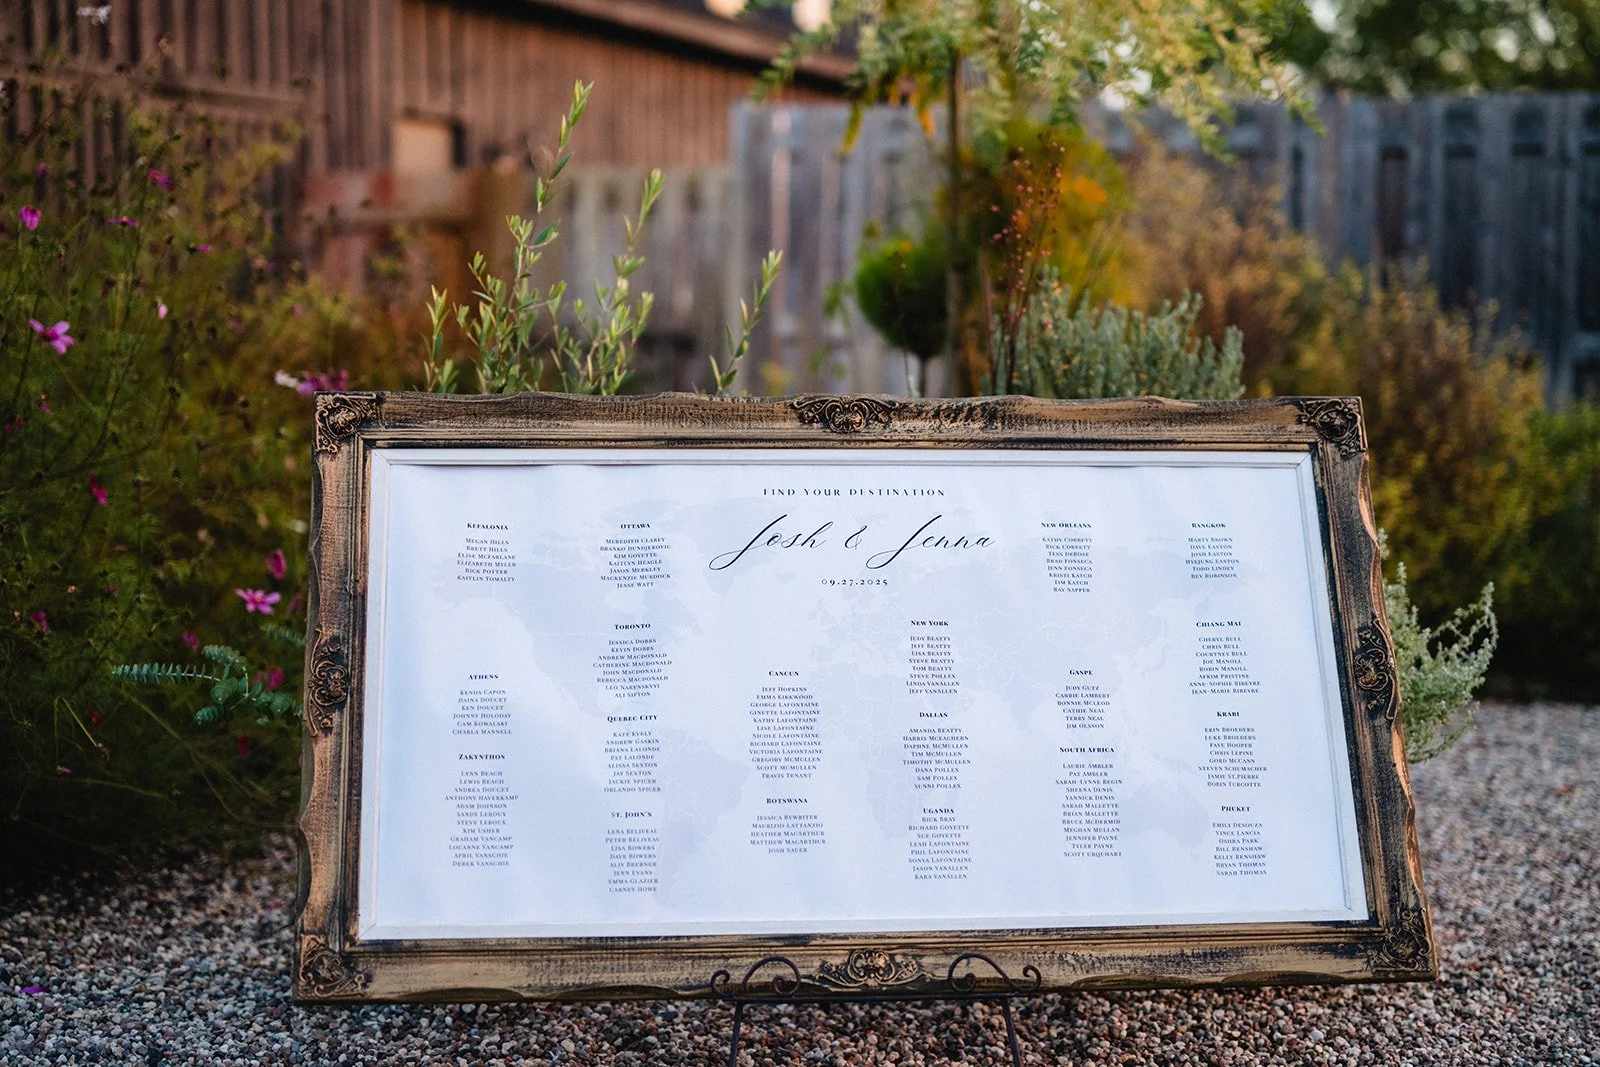 FIND YOUR DESTINATION
Josh & Jenna
09.27.2025
KEFALONIA
MEGAN HILLS
BRETT HILLS
ELISE MCFARLANE
ELIZABETH MYLER
RICK POTTER
KAITLIN TOMALTY
ATHENS
KENDA CAPON
DAINA DOUCET
KEN DOUCET
JOHNNY HOLODAY
CAM KOWALSKI
CHARLA MANNELL
ZAKYNTHOS
LYNN BEACH
LEWIS BEACH
ANDREA DOUCET
ANTHONY HAVERKAMP
ADAM JOHNSON
SANDY LEROUX
STEVE LEROUX
KIM USHER
GRAHAM VANCAMP
LOUANNE VANCAMP
APRIL VANSCHIE
DEREK VANSCHIE
OTTAWA
MEREDITH CLAREY
BRANKO DUNDJEROVIC
KIM GOYETTE
KAITLYN HEAGLE
JASON MERKLEY
MACKENZIE MURDOCK
JESSE WATT
TORONTO
JESSICA DOBBS
KEVIN DOBBS
ANDREW MACDONALD
CATHERINE MACDONALD
JOHN MACDONALD
REBECCA MACDONALD
LEO NARYNSKYYI
ALI SIFTON
QUEBEC CITY
KATE EVELY
ANDREW GASKIN
BRIANA LALONDE
PAT LALONDE
ALISSA SEXTON
JAY SEXTON
JACKIE SPICER
ORLANDO SPICER
ST. JOHN'S
LENA BELIVEAU
PETER BELIVEAU
LISA BOWERS
DAVE BOWERS
ALIY BREBNER
JENN EVANS
EMMA GLAZIER
CARNEY HOWE
CANCUN
JEFF HOPKINS
EMMA KIRKWOOD
GEORGE LAFONTAINE
GINETTE LAFONTAINE
KATHY LAFONTAINE
LISE LAFONTAINE
NICOLE LAFONTAINE
RICHARD LAFONTAINE
VICTORIA LAFONTAINE
GREGORY MCMULLEN
SCOTT MCMULLEN
TRAVIS TENANT
BOTSWANA
JESSICA BYWRITER
MAURIZIO LATTANZIO
HEATHER MACARTHUR
MATTHEW MACARTHUR
JOSH SAUER
NEW YORK
JUDY BEATTY
JEFF BEATTY
LISA BEATTY
STEVE BEATTY
TOM BEATTY
STEVE POLLEX
LINDA VANALLEN
JEFF VANALLEN
DALLAS
AMANDA BEATTY
HARRIS MCEACHERN
DAPHNE MCMULLEN
TIM MCMULLEN
TIMOTHY MCMULLEN
DANA POLLEX
SAM POLLEX
SUNNI POLLEX
UGANDA
RICK BRAY
RICHARD GOYETTE
SUE GOYETTE
LEAH LAFONTAINE
PHIL LAFONTAINE
SONYA LAFONTAINE
JASON VANALLEN
KARA VANALLEN
NEW ORLEANS
KATHY CORBETT
RICK CORBETT
TESS DEROSE
BRAD FONSECA
JENN FONSECA
KRISTI KATCH
TIM KATCH
RAY NAPPER
GASPE
JUDY GUTZ
CARRIE LAMBERT
BONNIE MCLEOD
CATHIE NEAL
TERRY NEAL
JIM OLSSON
SOUTH AFRICA
LAURIE AMBLER
PAT AMBLER
SARAH-LYNNE BEGIN
SHEENA DENIS
YANNICK DENIS
SARAH MALLETTE
BRIAN MALLETTE
BRUCE MCDERMID
MEGHAN MULLAN
JENNIFER PAYNE
TYLER PAYNE
SCOTT URQUHART
BANGKOK
MARTY BROWN
DAVE EASTON
JOSH EASTON
HYEJUNG EASTON
TODD LINDEY
BEV ROBINSON
CHIANG MAI
CHERYL BULL
CHRIS BULL
COURTNEY BULL
JOE MANOLL
ROBIN MANOLL
AFRIM PRISTINE
ANNE-SOPHIE RIBEYRE
JEAN-MARIE RIBEYRE
KRABI
ERIN BROEDERS
LUKE BROEDERS
FAYE HOOPER
CHRIS LÉPINE
GORD MCCANN
STEVEN SCHUMACHER
JAMIE ST.PIERRE
ROBIN TURCOTTE
PHUKET
EMILY DESOUZA
VINCE LANCIA
OSHRA PARK
BILL RENSHAW
KELLY RENSHAW
BRYAN THOMAS
SARAH THOMAS